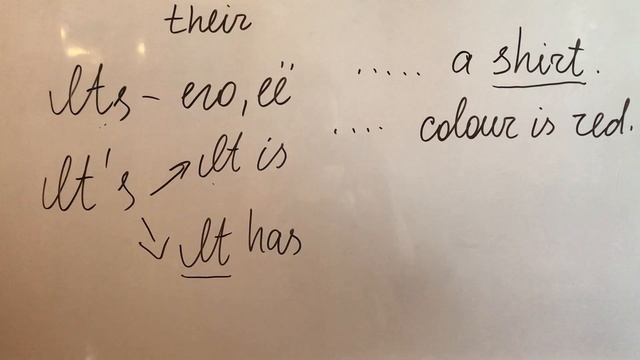 their
Its – его, её
It's ↗ It is
↘ It has
..... a shirt.
.... colour is red.